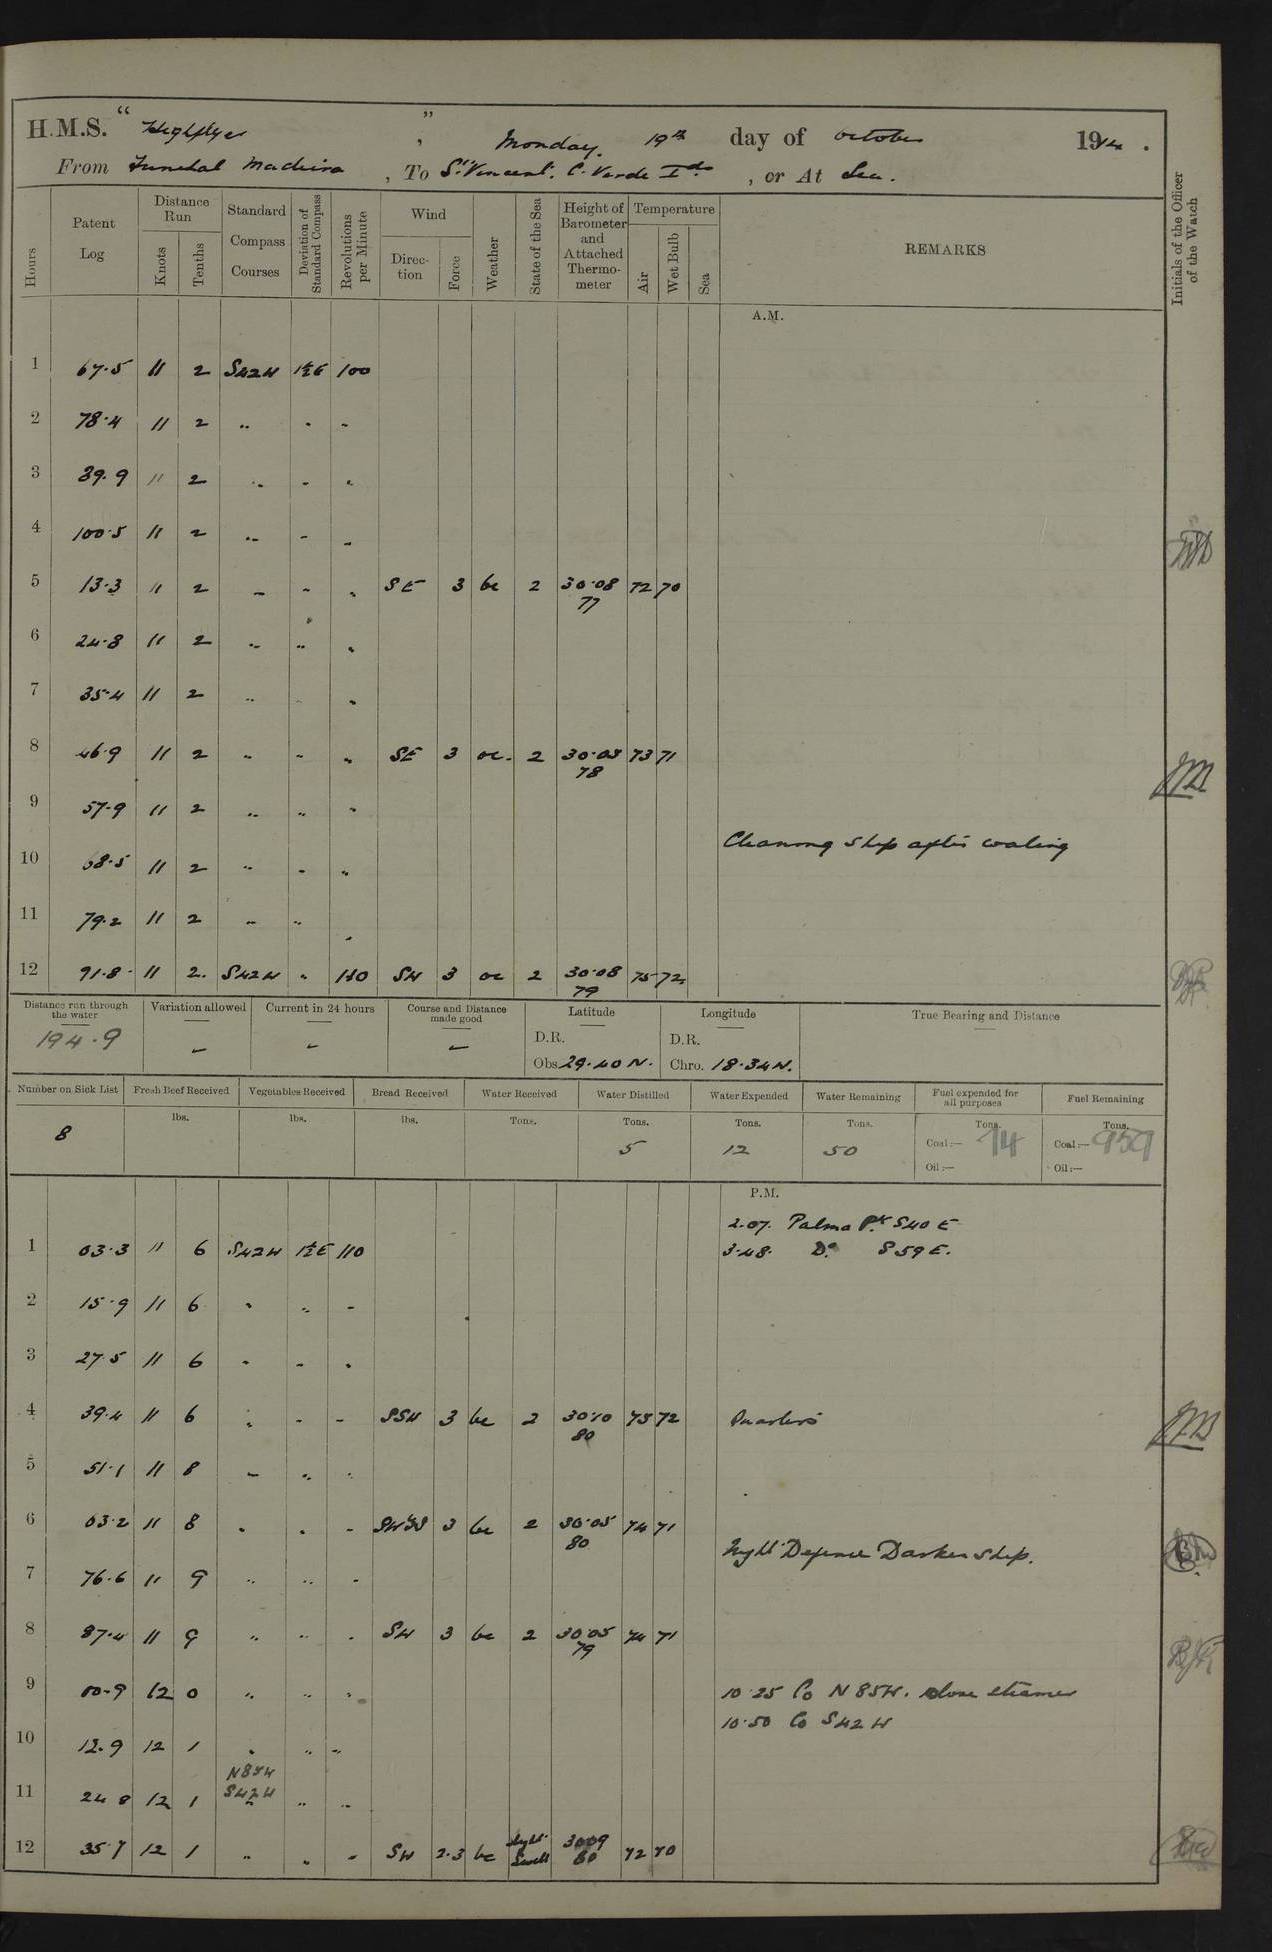 H.M.S. "Highflyer", Monday 19th day of October 1914.
From Funchal Madeira, To St Vincent. C. Verde Ids, or At Sea.
Hours Patent Log Distance Run Knots Tenths Standard Compass Courses Deviation of Standard Compass Revolutions per Minute Wind Direction Force Weather State of the Sea Height of Barometer and Attached Thermometer Temperature Air Wet Bulb Sea REMARKS Initials of the Officer of the Watch
A.M.
1 67.5 11 2 S42W 1½E 100
2 78.4 11 2 " " "
3 89.9 11 2 " " "
4 100.5 11 2 " " "
5 13.3 11 2 " " " SE 3 bc 2 30.08 72 70
77
6 24.8 11 2 " " "
7 35.4 11 2 " " "
8 46.9 11 2 " " " SE 3 oc. 2 30.03 73 71
78
9 57.9 11 2 " " "
Cleaning Ship after coaling
10 68.5 11 2 " " "
11 79.2 11 2 " " "
12 91.8 11 2. S42W " 110 SW 3 oc 2 30.08 75 72
79
Distance run through the water Variation allowed Current in 24 hours Course and Distance made good Latitude Longitude True Bearing and Distance
194.9 – – – D.R. D.R.
Obs 29.40 N. Chro. 18.34 W.
Number on Sick List Fresh Beef Received Vegetables Received Bread Received Water Received Water Distilled Water Expended Water Remaining Fuel expended for all purposes Fuel Remaining
lbs. lbs. lbs. Tons. Tons. Tons. Tons. Tons. Tons.
8 5 12 50 Coal:— 74 Coal:— 959
Oil:— Oil:—
P.M.
2.07. Palma Pk S40E
1 03.3 11 6 S42W 1½E 110 3.48. Do S59E.
2 15.9 11 6 " " "
3 27.5 11 6 " " "
4 39.4 11 6 " " " SSW 3 bc 2 30.10 75 72 Quarters
80
5 51.1 11 8 " " "
6 63.2 11 8 " " " SWyS 3 bc 2 30.05 74 71
80
Night Defence Darken ship.
7 76.6 11 9 " " "
8 87.4 11 9 " " " SW 3 bc 2 30.05 74 71
79
9 00.9 12 0 " " " 10.25 Co N85W. close steamer
10.50 Co S42W
10 12.9 12 1 " " "
N85W
11 24.8 12 1 S42W " "
12 35.7 12 1 " " " SW 2.3 bc slight Swell 30.09 72 70
80